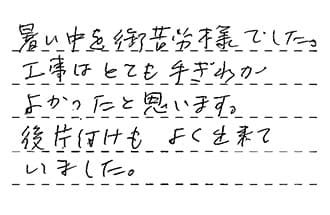 暑い中を御苦労様でした。
工事はとても手ぎわが
よかったと思います。
後片付けも よく出来て
いました。